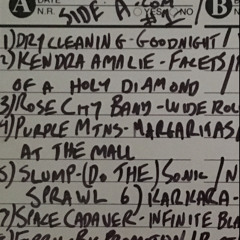 A DATE N.R. YES NO B
SIDE A
1) DRY CLEANING - GOODNIGHT /
2) KENDRA AMALIE - FACETS /
OF A HOLY DIAMOND
3) ROSE CITY BAND - WIDE ROL
4) PURPLE MTNS - MARGARITAS
AT THE MALL
5) SLUMP - (DO THE) SONIC / N
SPRAWL 6) KARKARA -
7) SPACE CADAVER - INFINITE BLA